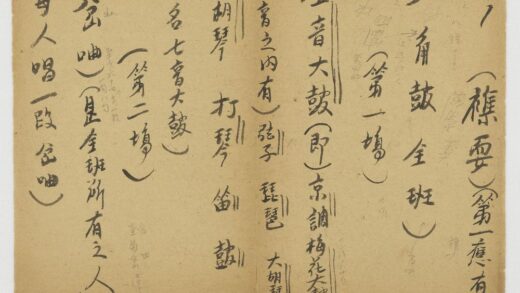 (襍耍)(第一應有
角鼓全班)
(第一場)
音大鼓(即)京調梅花大鼓
音之內有)弦子 琵琶 大胡琴
胡琴 打琴 笛 鼓
名七音大鼓)
(第二場)
岔呻)(是全班所有之人
每人唱一段岔呻)